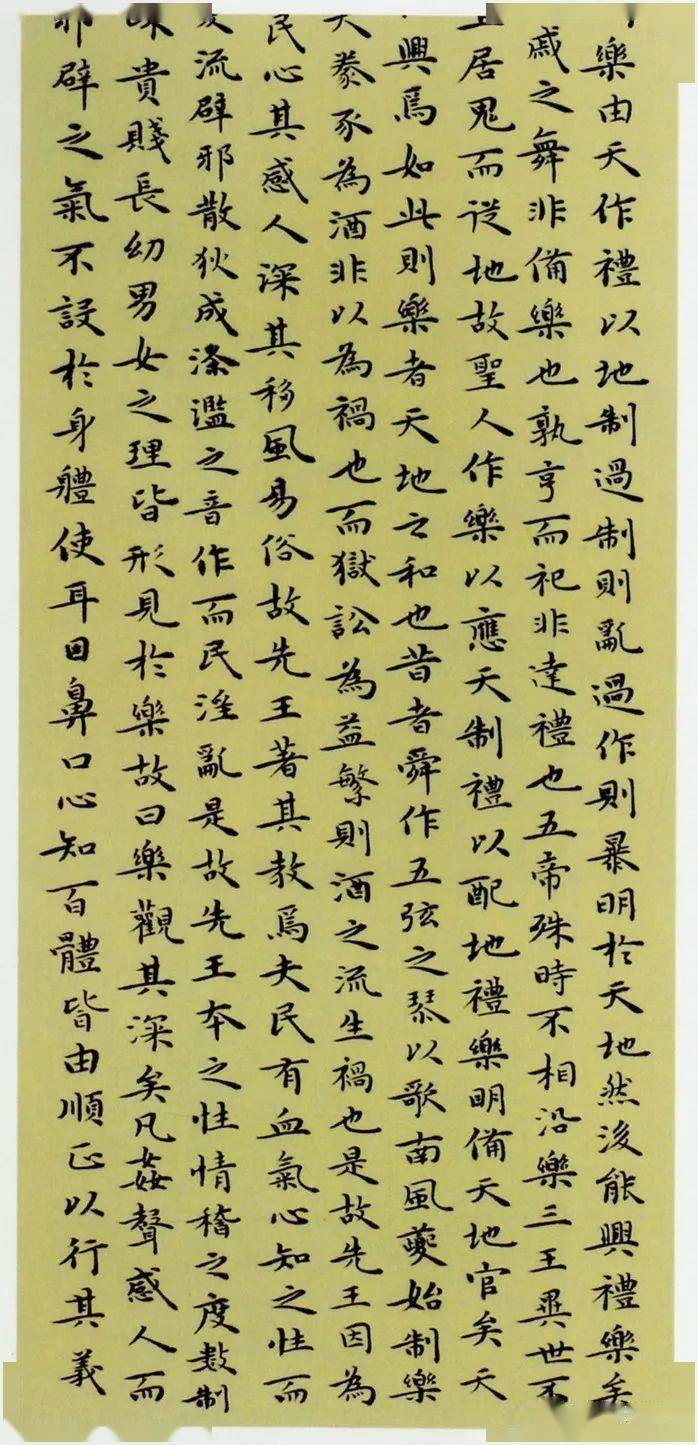 樂由天作禮以地制過制則亂過作則暴明於天地然後能興禮樂矣
戚之舞非備樂也孰亨而祀非達禮也五帝殊時不相沿樂三王異世不
居鬼而従地故聖人作樂以應天制禮以配地禮樂明備天地官矣天
興焉如此則樂者天地之和也昔者舜作五弦之琴以歌南風夔始制樂
夫豢豕為酒非以為禍也而獄訟為益繁則酒之流生禍也是故先王因為
民心其感人深其移風易俗故先王著其教焉夫民有血氣心知之性而
流辟邪散狄成滌濫之音作而民淫亂是故先王本之性情稽之度數制
貴賤長幼男女之理皆形見於樂故曰樂觀其深矣凡姦聲感人而
邪辟之氣不設於身體使耳目鼻口心知百體皆由順正以行其義